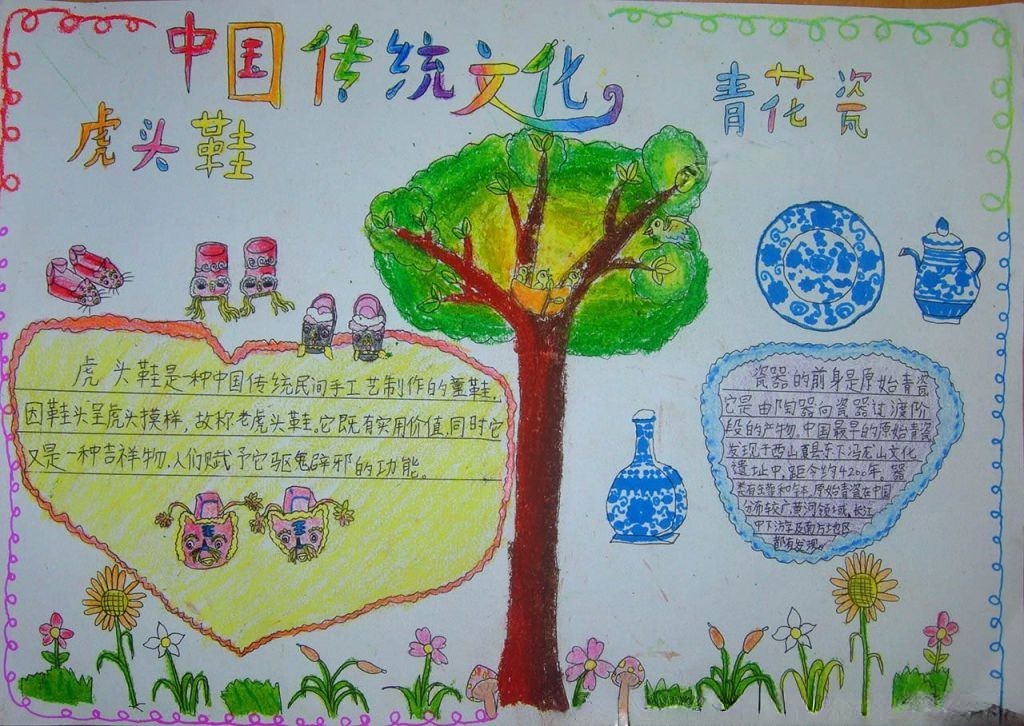 中国传统文化
虎头鞋
青花瓷
虎头鞋是一种中国传统民间手工艺制作的童鞋,
因鞋头呈虎头模样,故称老虎头鞋。它既有实用价值,同时它
又是一种吉祥物,人们赋予它驱鬼辟邪的功能。
瓷器的前身是原始青瓷
它是由陶器向瓷器过渡阶
段的产物。中国最早的原始青瓷
发现于西山夏县东下冯龙山文化
遗址中,距今约4200年。器
类有 和 原始青瓷在中国
分布较广,黄河领域,长江
中下游及南方地区
都有发现。